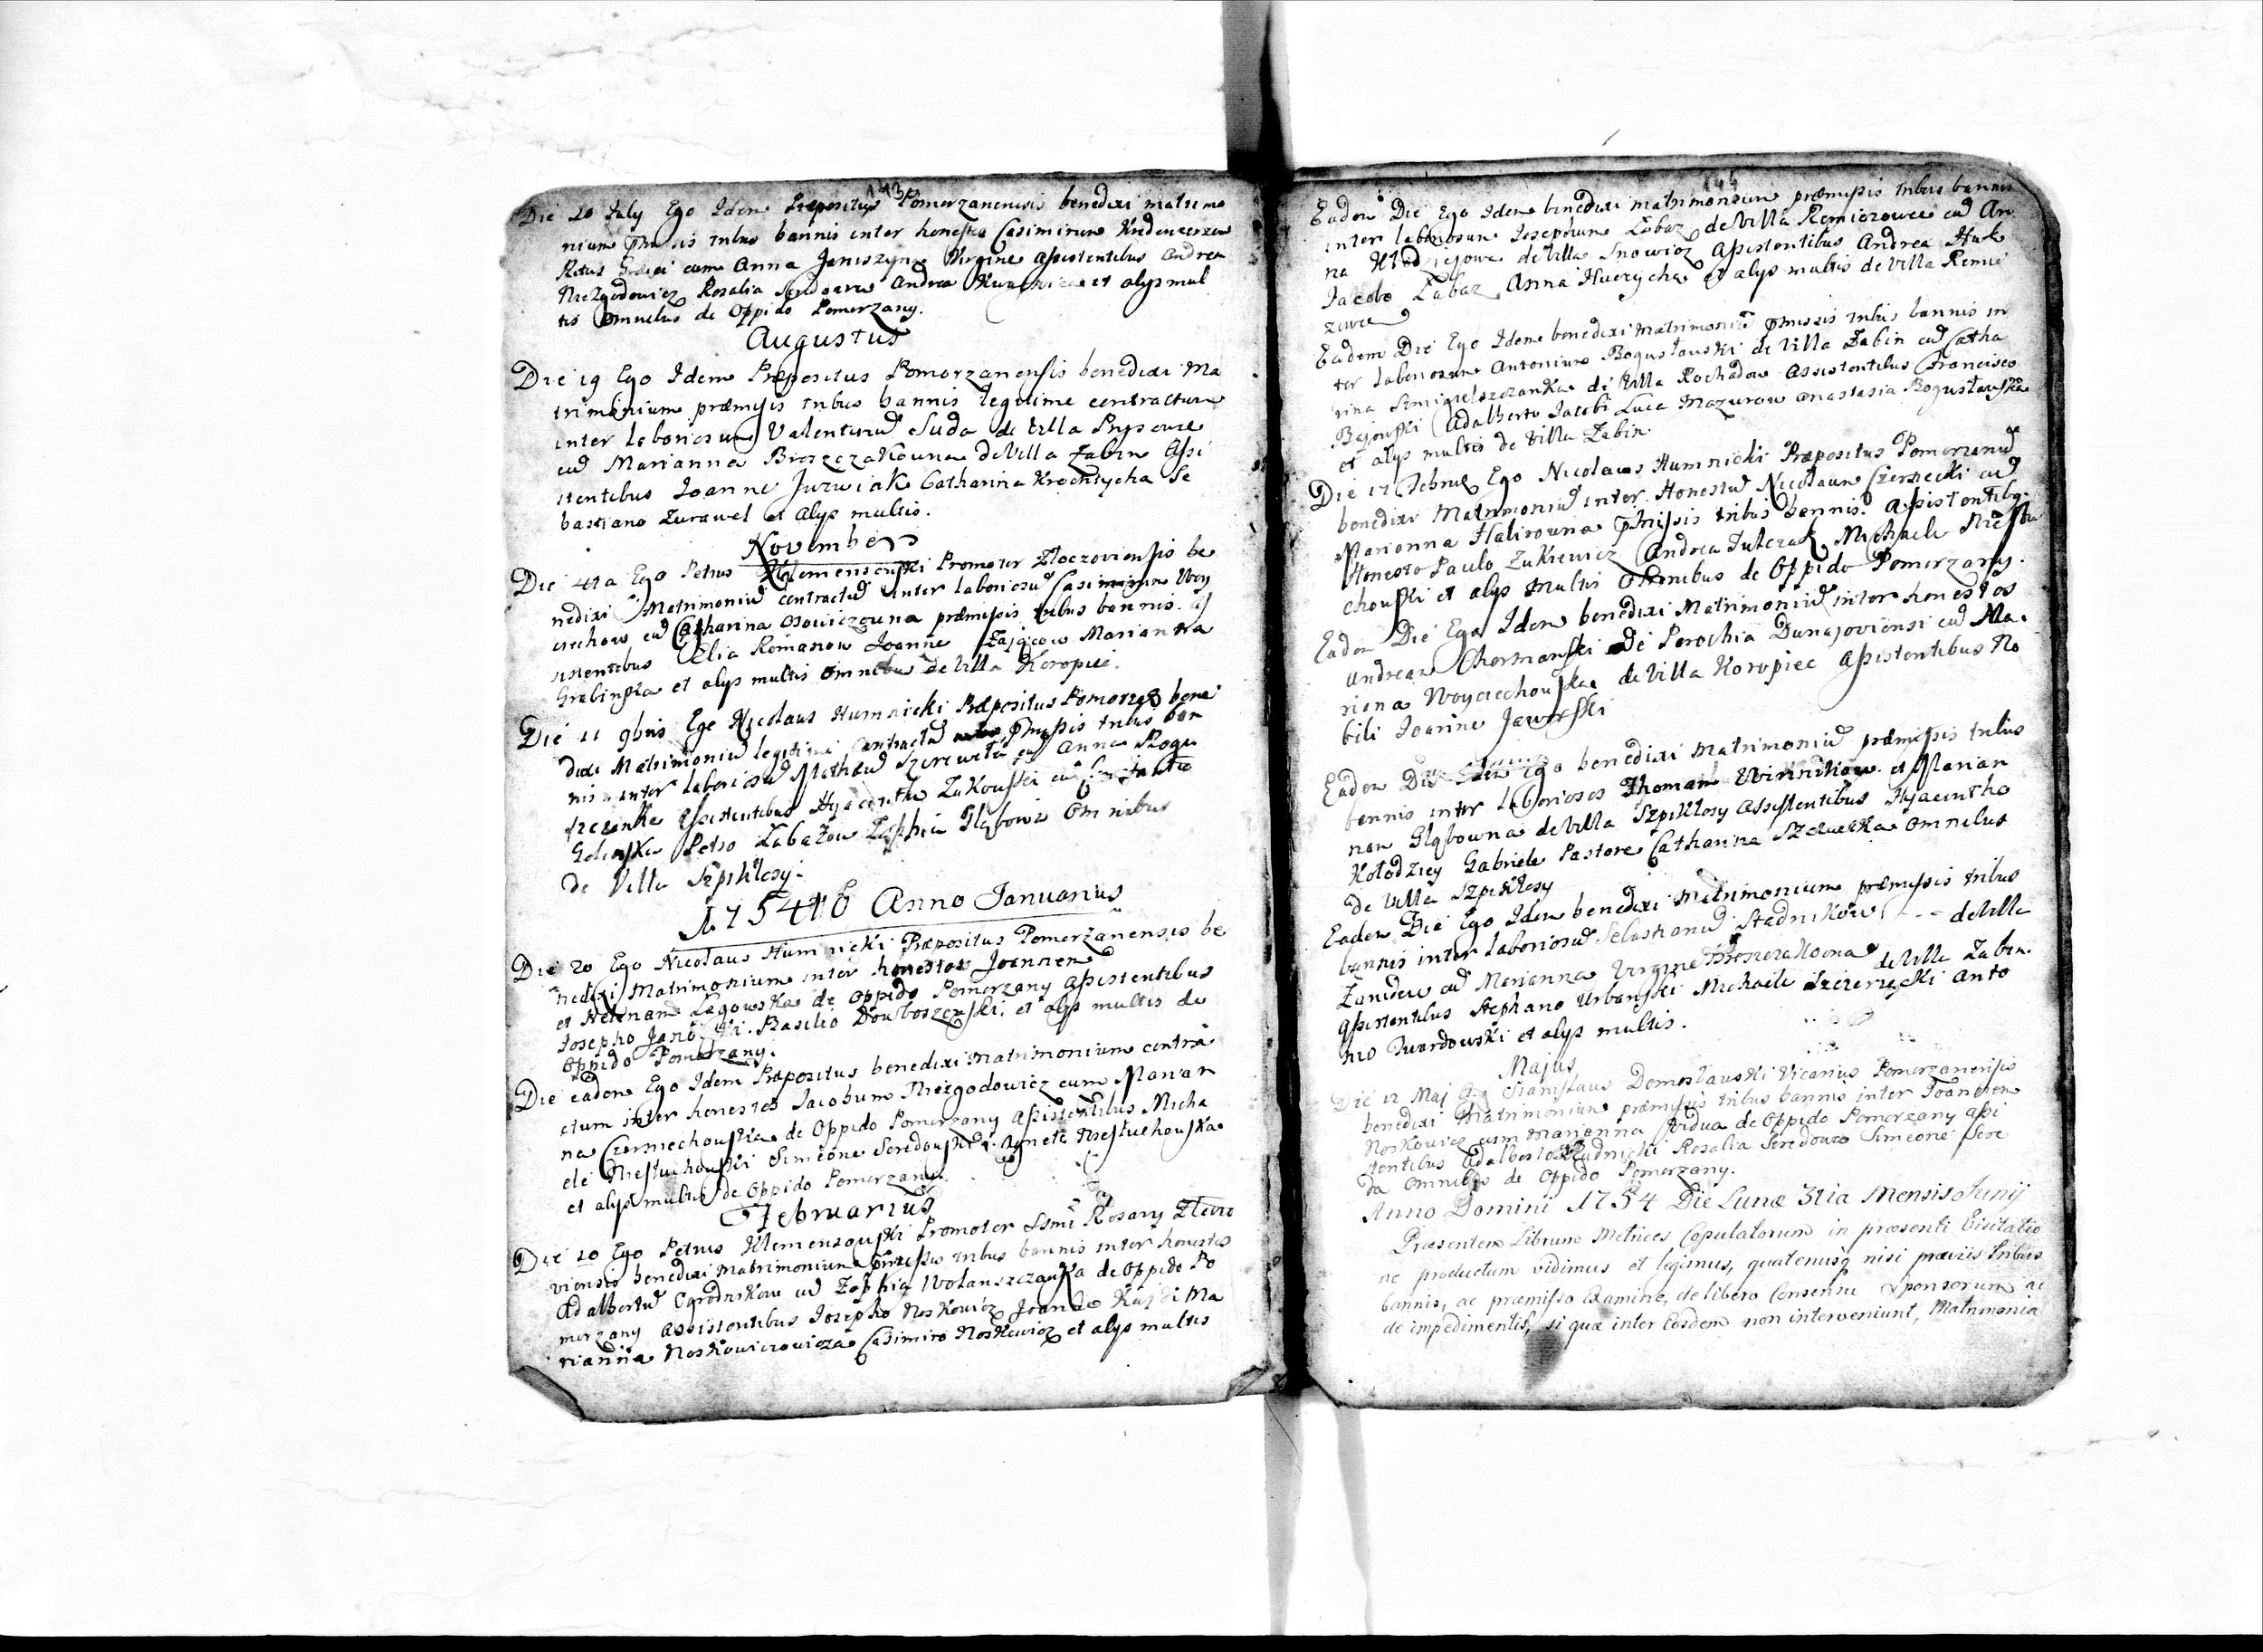 143
Die 20 July Ego Idem Præpositus Pomorzanensis benedixi matrimo
nium pmissis tribus bannis inter honestos Casimirum
Ritus Græci cum Anna Janiszyn Virgine assistentibus Andrea
Niezgodowicz Rosalia Andrea et alys mul
tis omnibus de Oppido Pomorzany.
Augustus
Die 19 Ego Idem Præpositus Pomorzanensis benedixi Ma
trimonium præmissis tribus bannis legitime contractum
inter laboriosum Valentinū Suda de Villa
cū Marianna Broszczakowna de Villa Zabin assi
stentibus Joanne Juzwiak Catharina Krochtycha Se
bastiano Zurawel et alys multis.
November
Die 4ta Ego Petrus Klemensowski Promotor Złoczoviensis be
nedixi Matrimoniū contractū inter laboriosū Casimirum Woy
ciechow cū Catharina Osowiczowna præmissis tribus bannis. as
sistentibus Elia Romanow Joanne Zającow Marianna
Grabinska et alys multis omnibus de Villa Koropiec.
Die 11 9bris Ego Nicolaus Humnicki Præpositus Pomorz bene
dixi Matrimoniū legitime contractū pmissis tribus ban
nis inter laboriosū Mathæū cū Anna Rogu
assistentibus Hyacintho Zukowski cū
Petro Łabazow Zophia Głąbowa Omnibus
de Villa Szpikłosy.
1754 Anno Januarius
Die 20 Ego Nicolaus Humnicki Præpositus Pomorzanensis be
nedixi Matrimonium inter honestos Joannem
et Helenam Łagowska de Oppido Pomorzany assistentibus
Josepho Basilio Dowboszewski. et alys multis de
Oppido Pomorzany.
Die eadem Ego Idem Præpositus benedixi Matrimonium contra
ctum inter honestos Jacobum Niezgodowicz cum Marian
na Czerniechowska de Oppido Pomorzany assistentibus Micha
ele Niestuchowski Simeone Seredowski Agnete Niestuchowska
et alys multis de Oppido Pomorzany.
Februarius
Die 10 Ego Petrus Klemensowski Promotor SSmi Rosary Złoczo
viensis benedixi matrimonium pmissis tribus bannis inter honestos
Adalbertū Ogrodnikow cū Zophia Wolanszczanka de Oppido Po
morzany assistentibus Josepho Noskowicz Joanne Ma
rianna Noskowiczowicza Casimiro Noskewicz et alys multis
144
Eadem Die Ego Idem benedixi matrimonium præmissis tribus bannis
inter laboriosum Josephum Łabaz de Villa Remizowce cū An
na de Villa Snowicz assistentibus Andrea Huk
Jacobo Łabaz Anna Huczycha et alys multis de Villa Remi
zowce
Eadem Die Ego Idem benedixi Matrimoniū pmissis tribus bannis in
ter laboriosum Antonium Bogusławski de Villa Zabin cū Catha
rina de Villa Rochadow assistentibus Francisco
Bajowski Adalberto Jacobi Luca Mazurow Anastasia Bogusławska
et alys multis de Villa Zabin
Die 12 Febru Ego Nicolaus Humnicki Præpositus Pomorzanū
benedixi Matrimoniū inter Honestū Nicolaum Czernecki cū
Marianna Halirowna pmissis tribus bannis. assistentibg
Honesto Paulo Zukiewicz Andrea Michaele Niestu
chowski et alys multis Omnibus de Oppido Pomorzany.
Eadem Die Ego Idem benedixi Matrimoniū inter honestos
Andream Chormanski de Parochia Dunajoviensi cū Ma.
rianna Woyciechowska de Villa Koropiec assistentibus No
bili Joanne Jaworski
Eadem Die Idem Ego benedixi Matrimoniū præmissis tribus
bannis inter laboriosos Thomam Winnikow et Marian
nam Głąbowna de Villa Szpikłosy assistentibus Hyacintho
Kołodziey Gabriele Pastore Catharina omnibus
de Villa Szpikłosy
Eadem Die Ego Idem benedixi Matrimonium præmissis tribus
bannis inter laboriosū Sebastianū Stadnikow - - - de Villa
cū Marianna Virgine Broszczakowna de Villa Zabin.
assistentibus Stephano Urbanski Michaele Anto
nio Twardowski et alys multis.
Majus
Die 12 Maj Ego Stanislaus Domosławski Vicarius Pomorzanensis
benedixi Matrimonium præmissis tribus bannis inter Joannem
Noskowicz cum Marianna Vidua de Oppido Pomorzany assi
stentibus Adalberto Rudnicki Rosalia Seredowa Simeone Sere
da omnibus de Oppido Pomorzany.
Anno Domini 1754 Die Lunæ 3tia Mensis Junij
Præsentem Librum Metrices Copulatorum in præsenti Visitatio
ne productum vidimus et legimus, quatenusq nisi præviis tribus
bannis, ac præmisso Examine, de libero Consensu Sponsorum ac
de impedimentis, si quæ inter Eosdem non interveniunt, Matrimonia